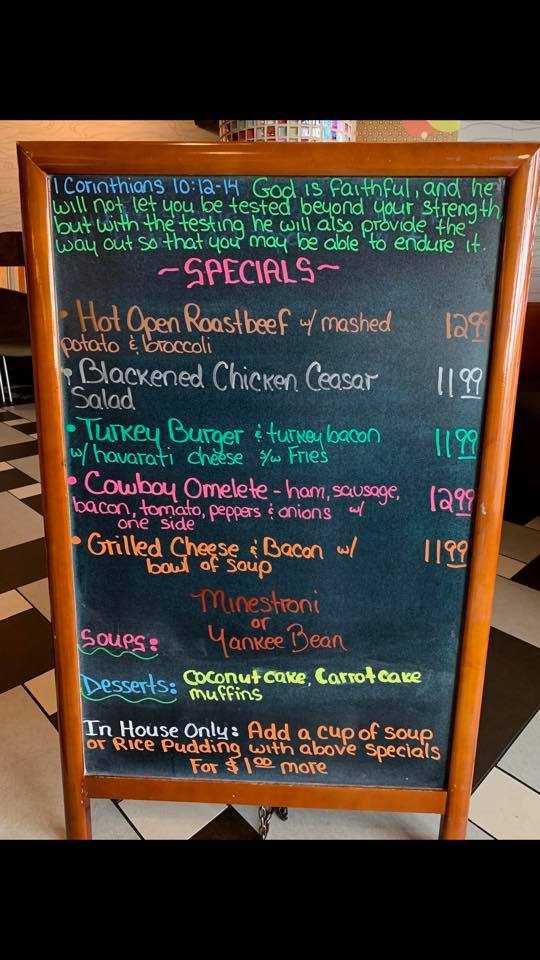 1 Corinthians 10:12-14 God is faithful, and he
will not let you be tested beyond your strength
but with the testing he will also provide the
way out so that you may be able to endure it.
~SPECIALS~
• Hot Open Roastbeef w/ mashed 12 99
potato & broccoli
• Blackened Chicken Ceasar 11 99
Salad
• Turkey Burger & turkey bacon 11 99
w/ havarati cheese s/w Fries
• Cowboy Omelete - ham, sausage, 12 99
bacon, tomato, peppers & onions w/
one side
• Grilled Cheese & Bacon w/ 11 99
bowl of soup
Minestroni
or
Soups: Yankee Bean
Desserts: Coconut cake, Carrot cake
muffins
In House Only: Add a cup of soup
or Rice Pudding with above specials
For $1 00 more